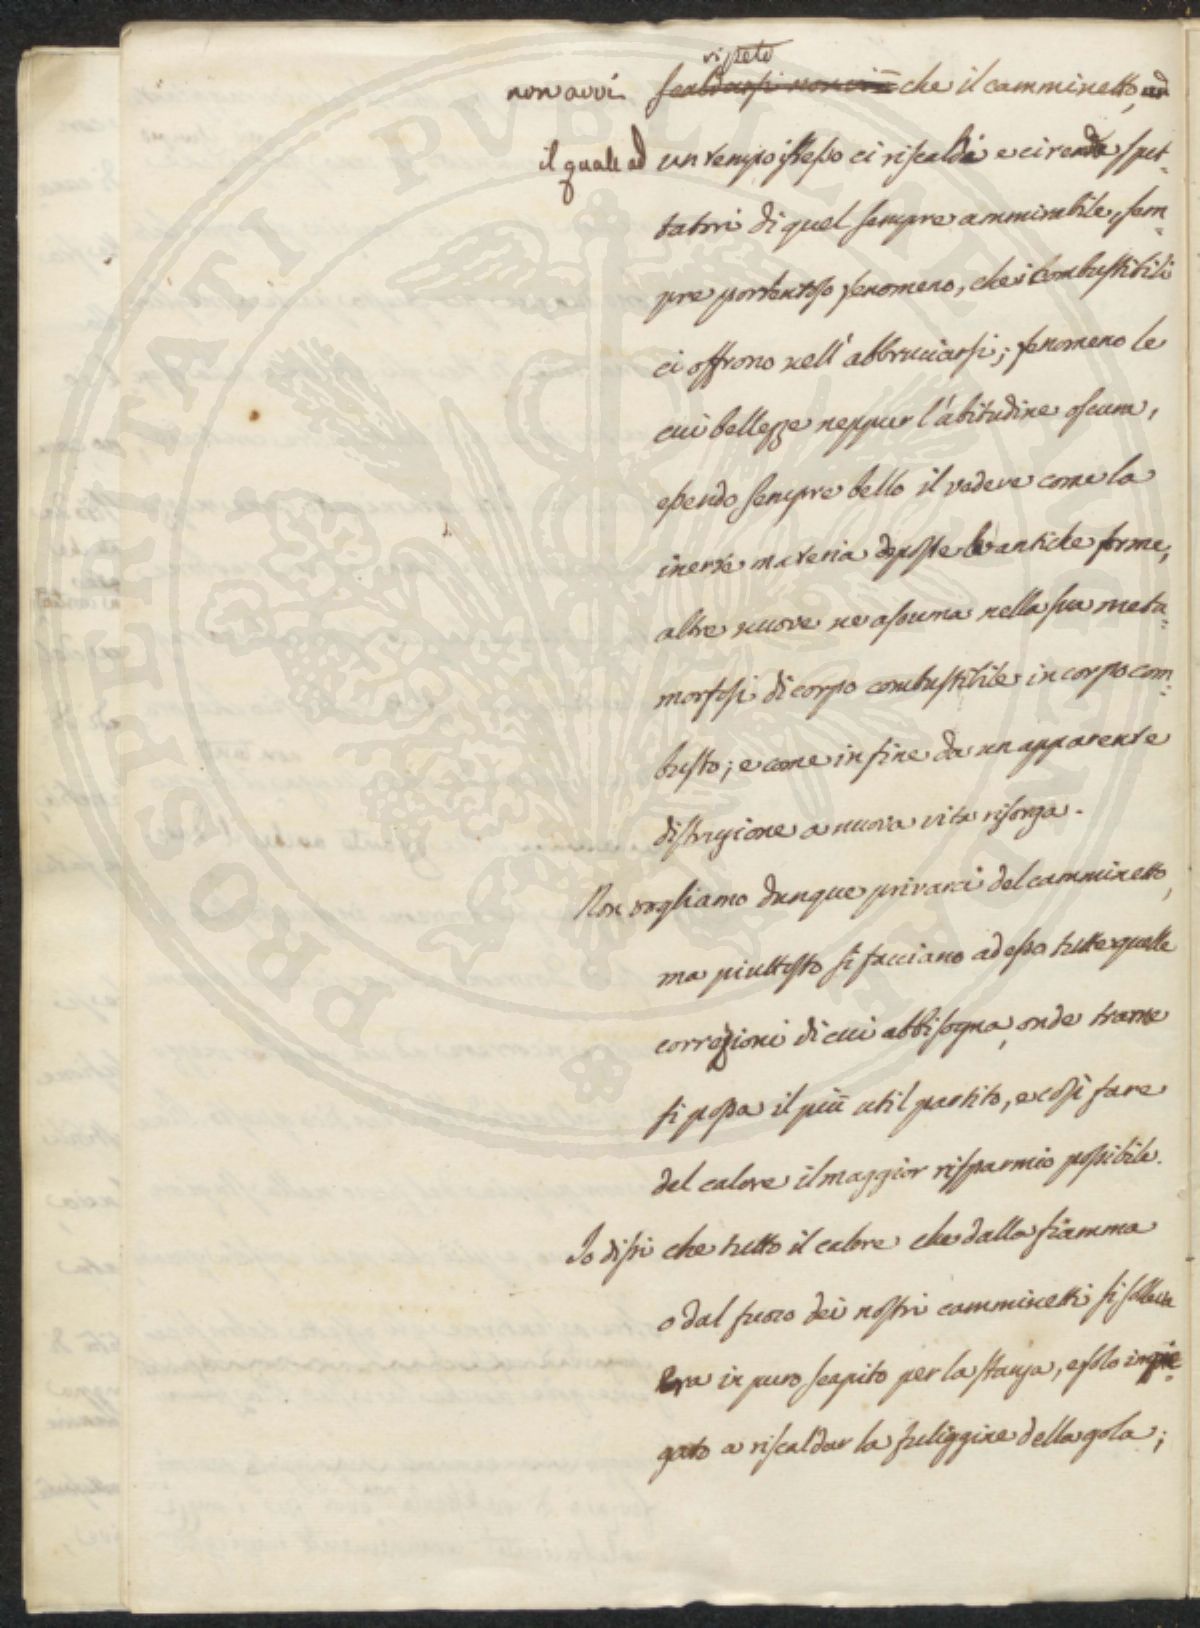 ripeto
non avvi scaldarsi non vi è che il camminetto, ad
il quale ad un tempo istesso ci riscalda e ci rende spet-
tatori di quel sempre ammirabile, sem-
pre portentoso fenomeno, che i Combustibili
ci offrono nell'abbruciarsi; fenomeno le
cui bellezze neppur l'abitudine oscura,
essendo sempre bello il vedere come la
inerte materia deposte le antiche forme,
altre nuove ne assuma nella sua meta-
morfosi di corpo combustibile in corpo com-
busto; e come in fine da un apparente
distruzione a nuova vita risorga.
Non vogliamo dunque privarci del camminetto,
ma piuttosto si facciano ad esso tutte quelle
correzioni di cui abbisogna, onde trarne
si possa il più util partito, e così fare
del calore il maggior risparmio possibile.
Io dissi che tutto il calore che dalla fiamma
o dal fuoco dei nostri camminetti si solleva
era in puro scapito per la stanza, e solo impie-
gato a riscaldar la fuliggine della gola;
PROSPERITATI PUBLICAE AUGENDAE